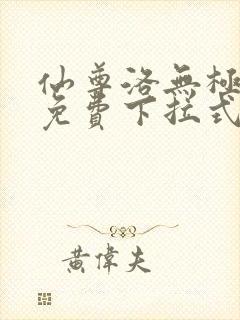 仙尊洛無極
免費下拉式
黃偉夫